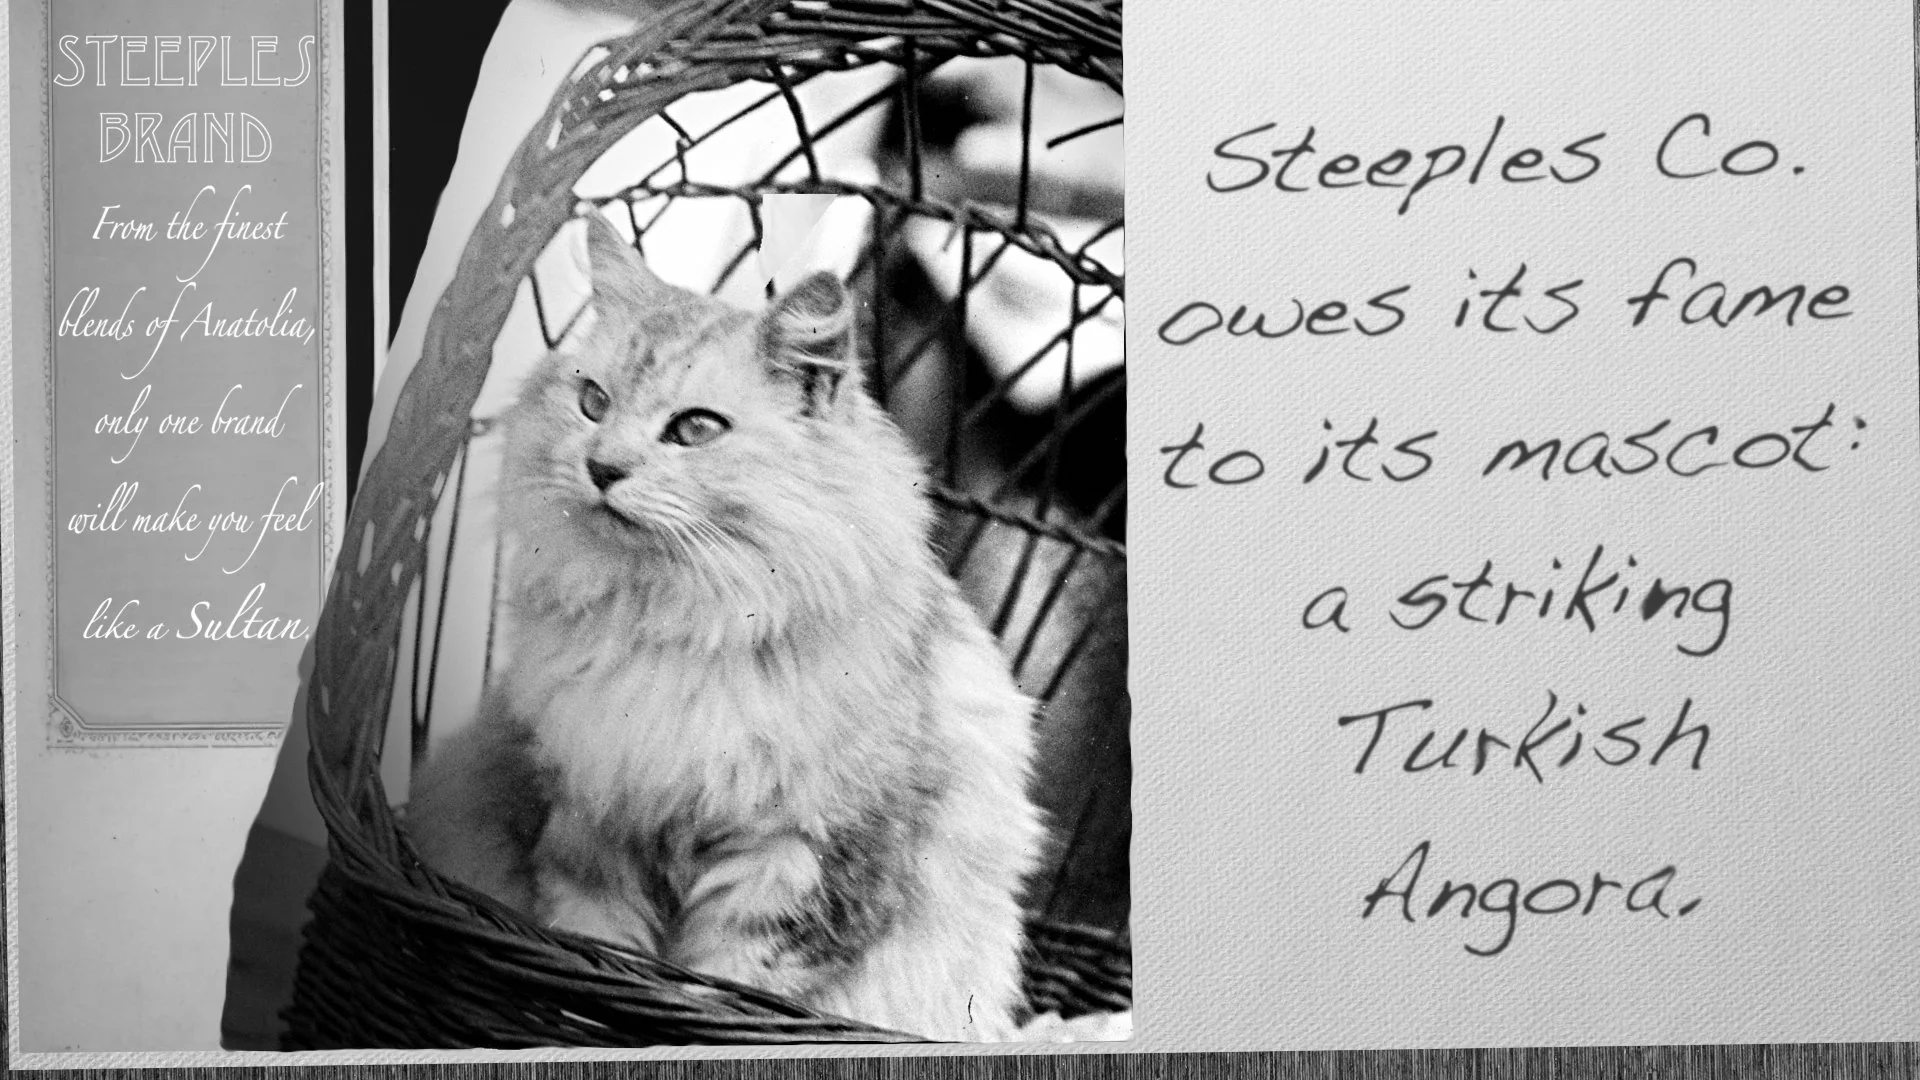 STEEPLES
BRAND
From the finest
blends of Anatolia,
only one brand
will make you feel
like a Sultan.
Steeples Co.
owes its fame
to its mascot:
a striking
Turkish
Angora.